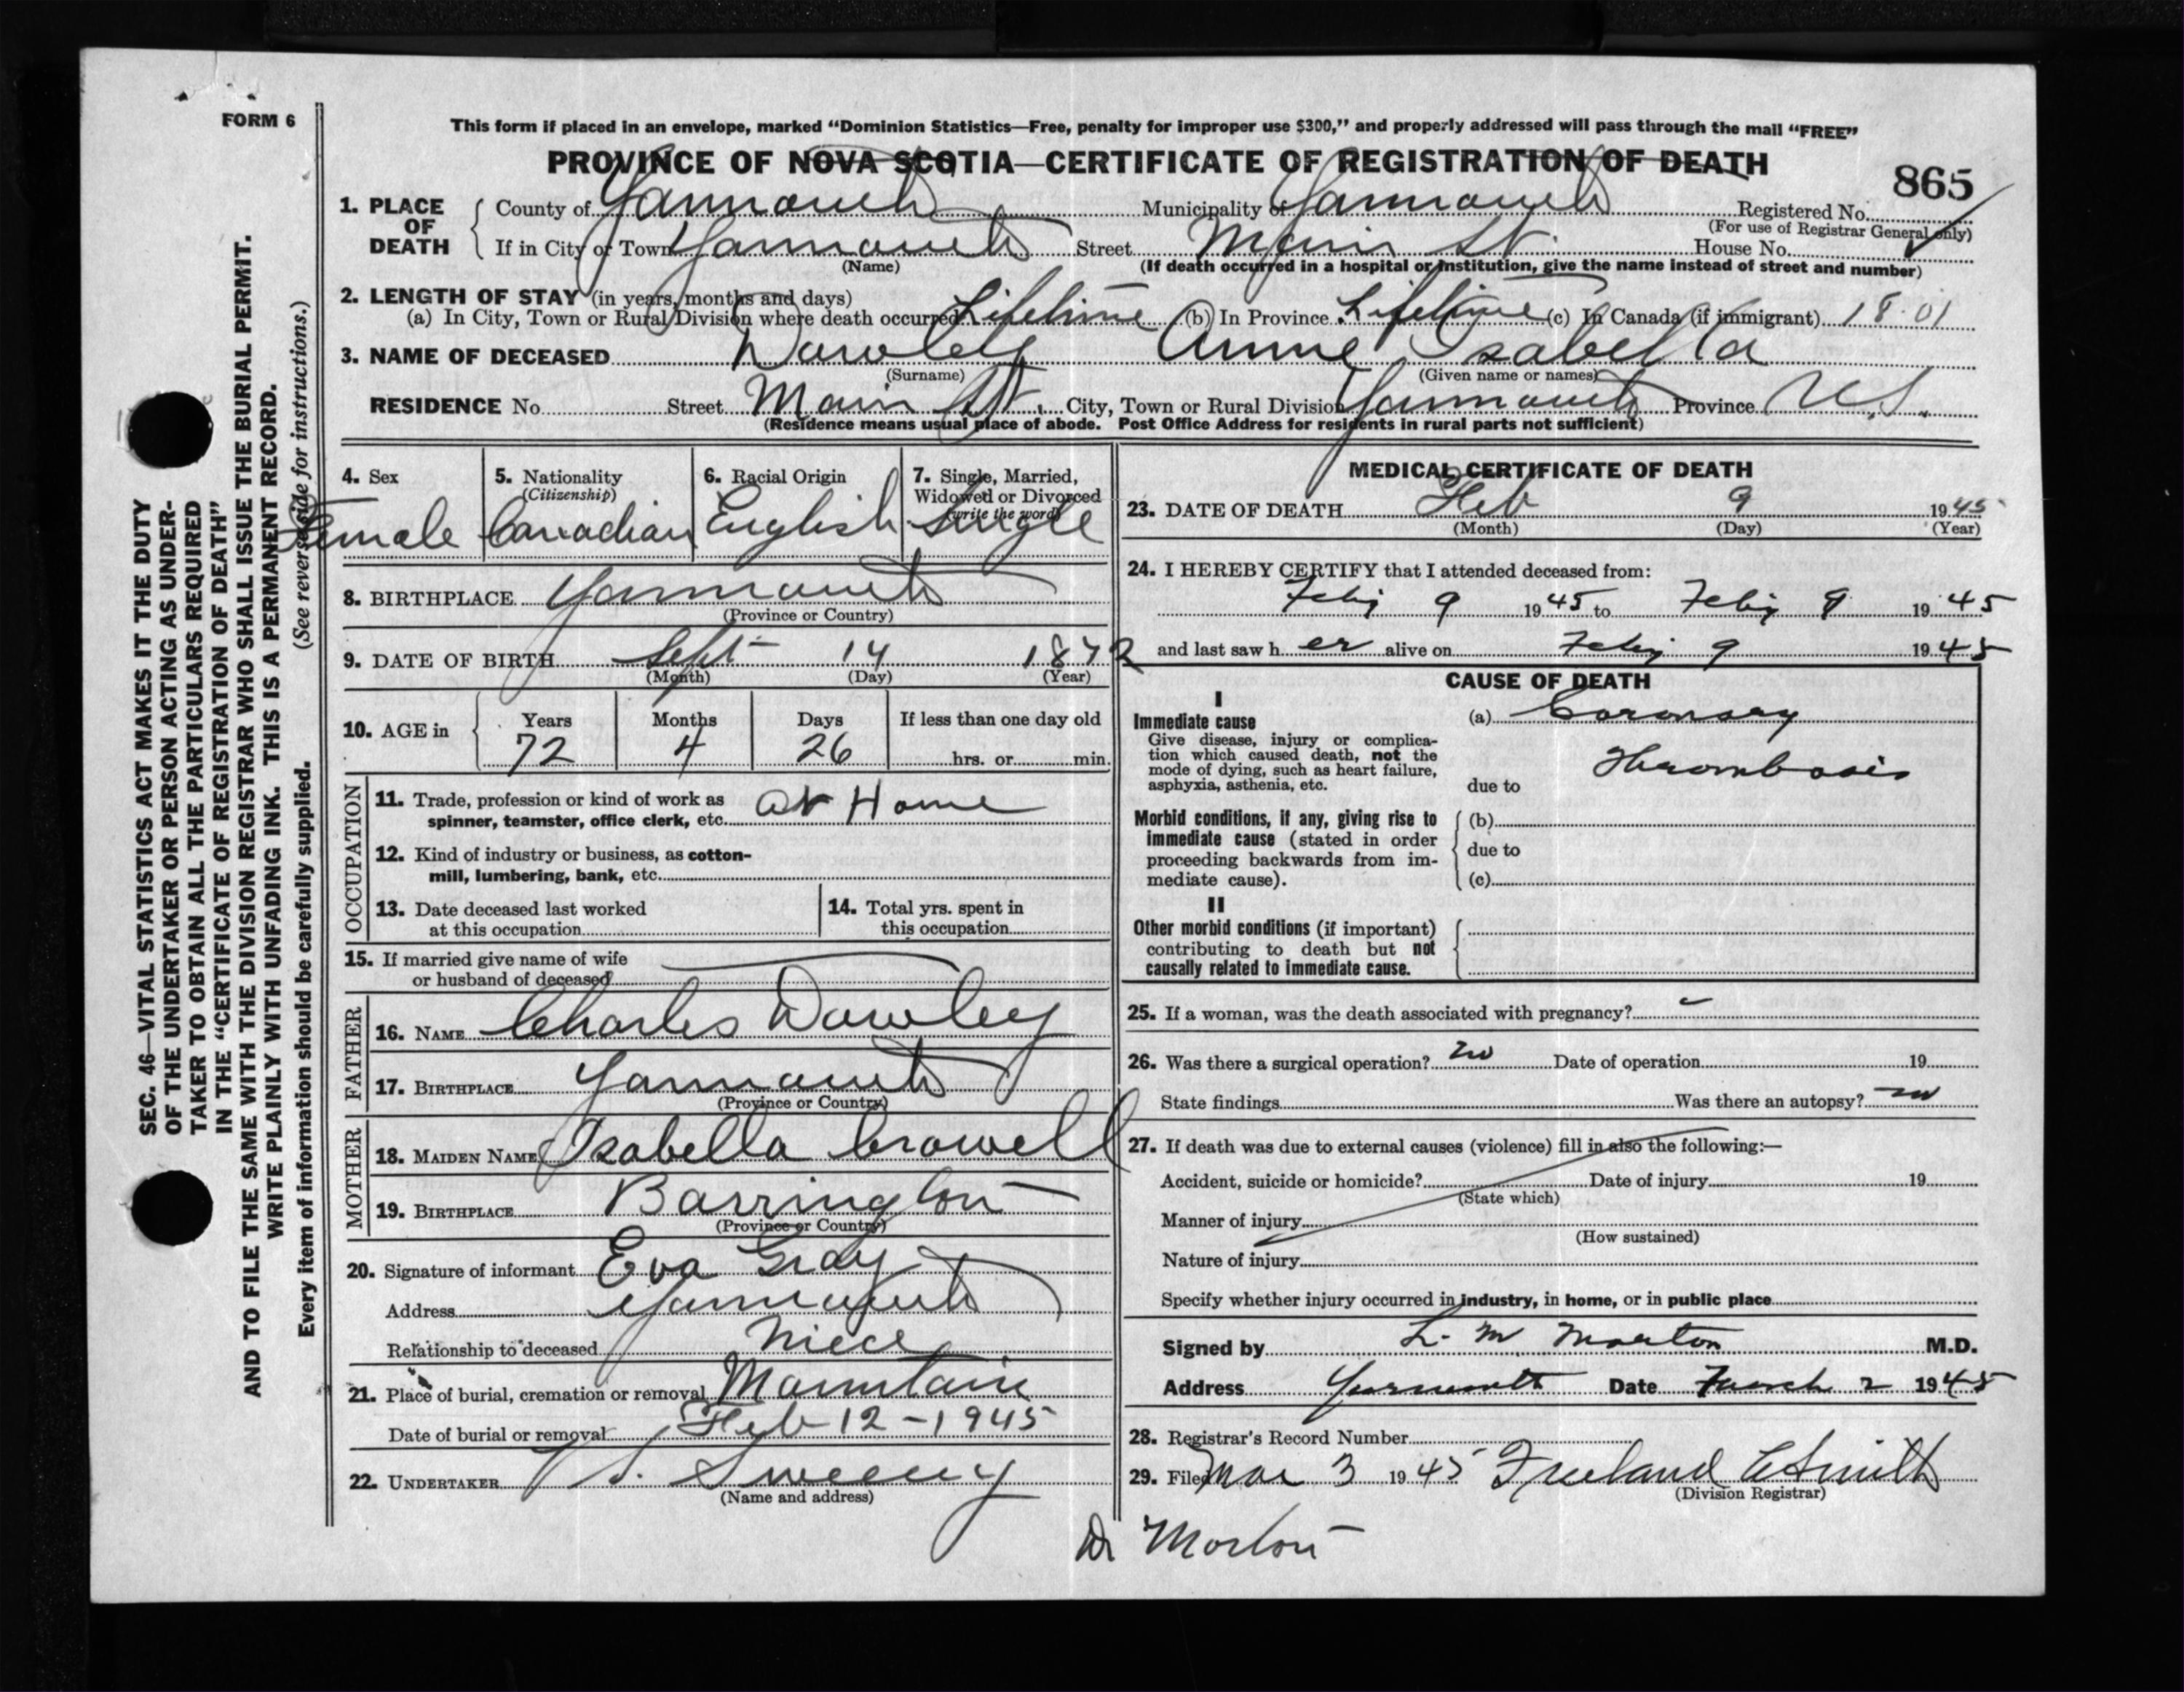 FORM 6
This form if placed in an envelope, marked "Dominion Statistics—Free, penalty for improper use $300," and properly addressed will pass through the mail "FREE"
PROVINCE OF NOVA SCOTIA—CERTIFICATE OF REGISTRATION OF DEATH
865
1. PLACE OF DEATH
County of Yarmouth Municipality of Yarmouth Registered No.
(For use of Registrar General only)
If in City or Town Yarmouth Street Main St. House No.
(Name) (If death occurred in a hospital or institution, give the name instead of street and number)
2. LENGTH OF STAY (in years, months and days)
(a) In City, Town or Rural Division where death occurred Lifetime (b) In Province Lifetime (c) In Canada (if immigrant) 18 01
3. NAME OF DECEASED Dowley Annie Isabella
(Surname) (Given name or names)
RESIDENCE No. Street Main St. City, Town or Rural Division Yarmouth Province N.S.
(Residence means usual place of abode. Post Office Address for residents in rural parts not sufficient)
4. Sex Female
5. Nationality (Citizenship) Canadian
6. Racial Origin English
7. Single, Married, Widowed or Divorced (write the word) Single
8. BIRTHPLACE Yarmouth
(Province or Country)
9. DATE OF BIRTH Sept 14 1872
(Month) (Day) (Year)
10. AGE in Years 72 Months 4 Days 26 If less than one day old
hrs. or min.
OCCUPATION
11. Trade, profession or kind of work as
spinner, teamster, office clerk, etc. At Home
12. Kind of industry or business, as cotton-
mill, lumbering, bank, etc.
13. Date deceased last worked
at this occupation
14. Total yrs. spent in
this occupation
15. If married give name of wife
or husband of deceased
FATHER
16. NAME Charles Dowley
17. BIRTHPLACE Yarmouth
(Province or Country)
MOTHER
18. MAIDEN NAME Isabella Crowell
19. BIRTHPLACE Barrington
(Province or Country)
20. Signature of informant Eva Gray
Address Yarmouth
Relationship to deceased Niece
21. Place of burial, cremation or removal Mountain
Date of burial or removal Feb 12-1945
22. UNDERTAKER V S. Sweeny
(Name and address)
MEDICAL CERTIFICATE OF DEATH
23. DATE OF DEATH Feb 9 1945
(Month) (Day) (Year)
24. I HEREBY CERTIFY that I attended deceased from:
Feby 9 1945 to Feby 9 1945
and last saw her alive on Feby 9 1945
CAUSE OF DEATH
I
Immediate cause
Give disease, injury or complica-
tion which caused death, not the
mode of dying, such as heart failure,
asphyxia, asthenia, etc.
(a) Coronary
Thrombosis
due to
Morbid conditions, if any, giving rise to
immediate cause (stated in order
proceeding backwards from im-
mediate cause).
(b)
due to
(c)
II
Other morbid conditions (if important)
contributing to death but not
causally related to immediate cause.
25. If a woman, was the death associated with pregnancy?
26. Was there a surgical operation? no Date of operation 19
State findings Was there an autopsy? no
27. If death was due to external causes (violence) fill in also the following:—
Accident, suicide or homicide? Date of injury 19
(State which)
Manner of injury
(How sustained)
Nature of injury
Specify whether injury occurred in industry, in home, or in public place
Signed by L. M. Morton M.D.
Address Yarmouth Date March 2 1945
28. Registrar's Record Number
29. Filed Mar 3 1945 Freeland C Smith
(Division Registrar)
Dr Morton
SEC. 46—VITAL STATISTICS ACT MAKES IT THE DUTY
OF THE UNDERTAKER OR PERSON ACTING AS UNDER-
TAKER TO OBTAIN ALL THE PARTICULARS REQUIRED
IN THE "CERTIFICATE OF REGISTRATION OF DEATH"
AND TO FILE THE SAME WITH THE DIVISION REGISTRAR WHO SHALL ISSUE THE BURIAL PERMIT.
WRITE PLAINLY WITH UNFADING INK. THIS IS A PERMANENT RECORD.
Every item of information should be carefully supplied. (See reverse side for instructions.)